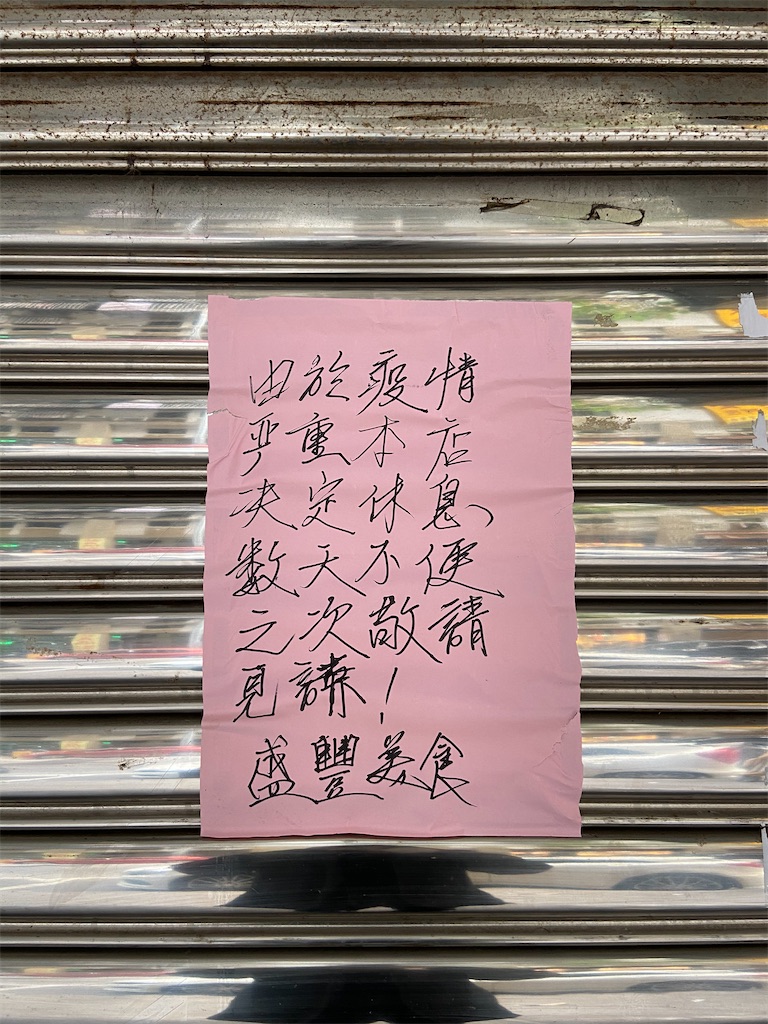 由於疫情
严重本店
决定休息
数天不便
之次敬請
見諒！
盛豐美食